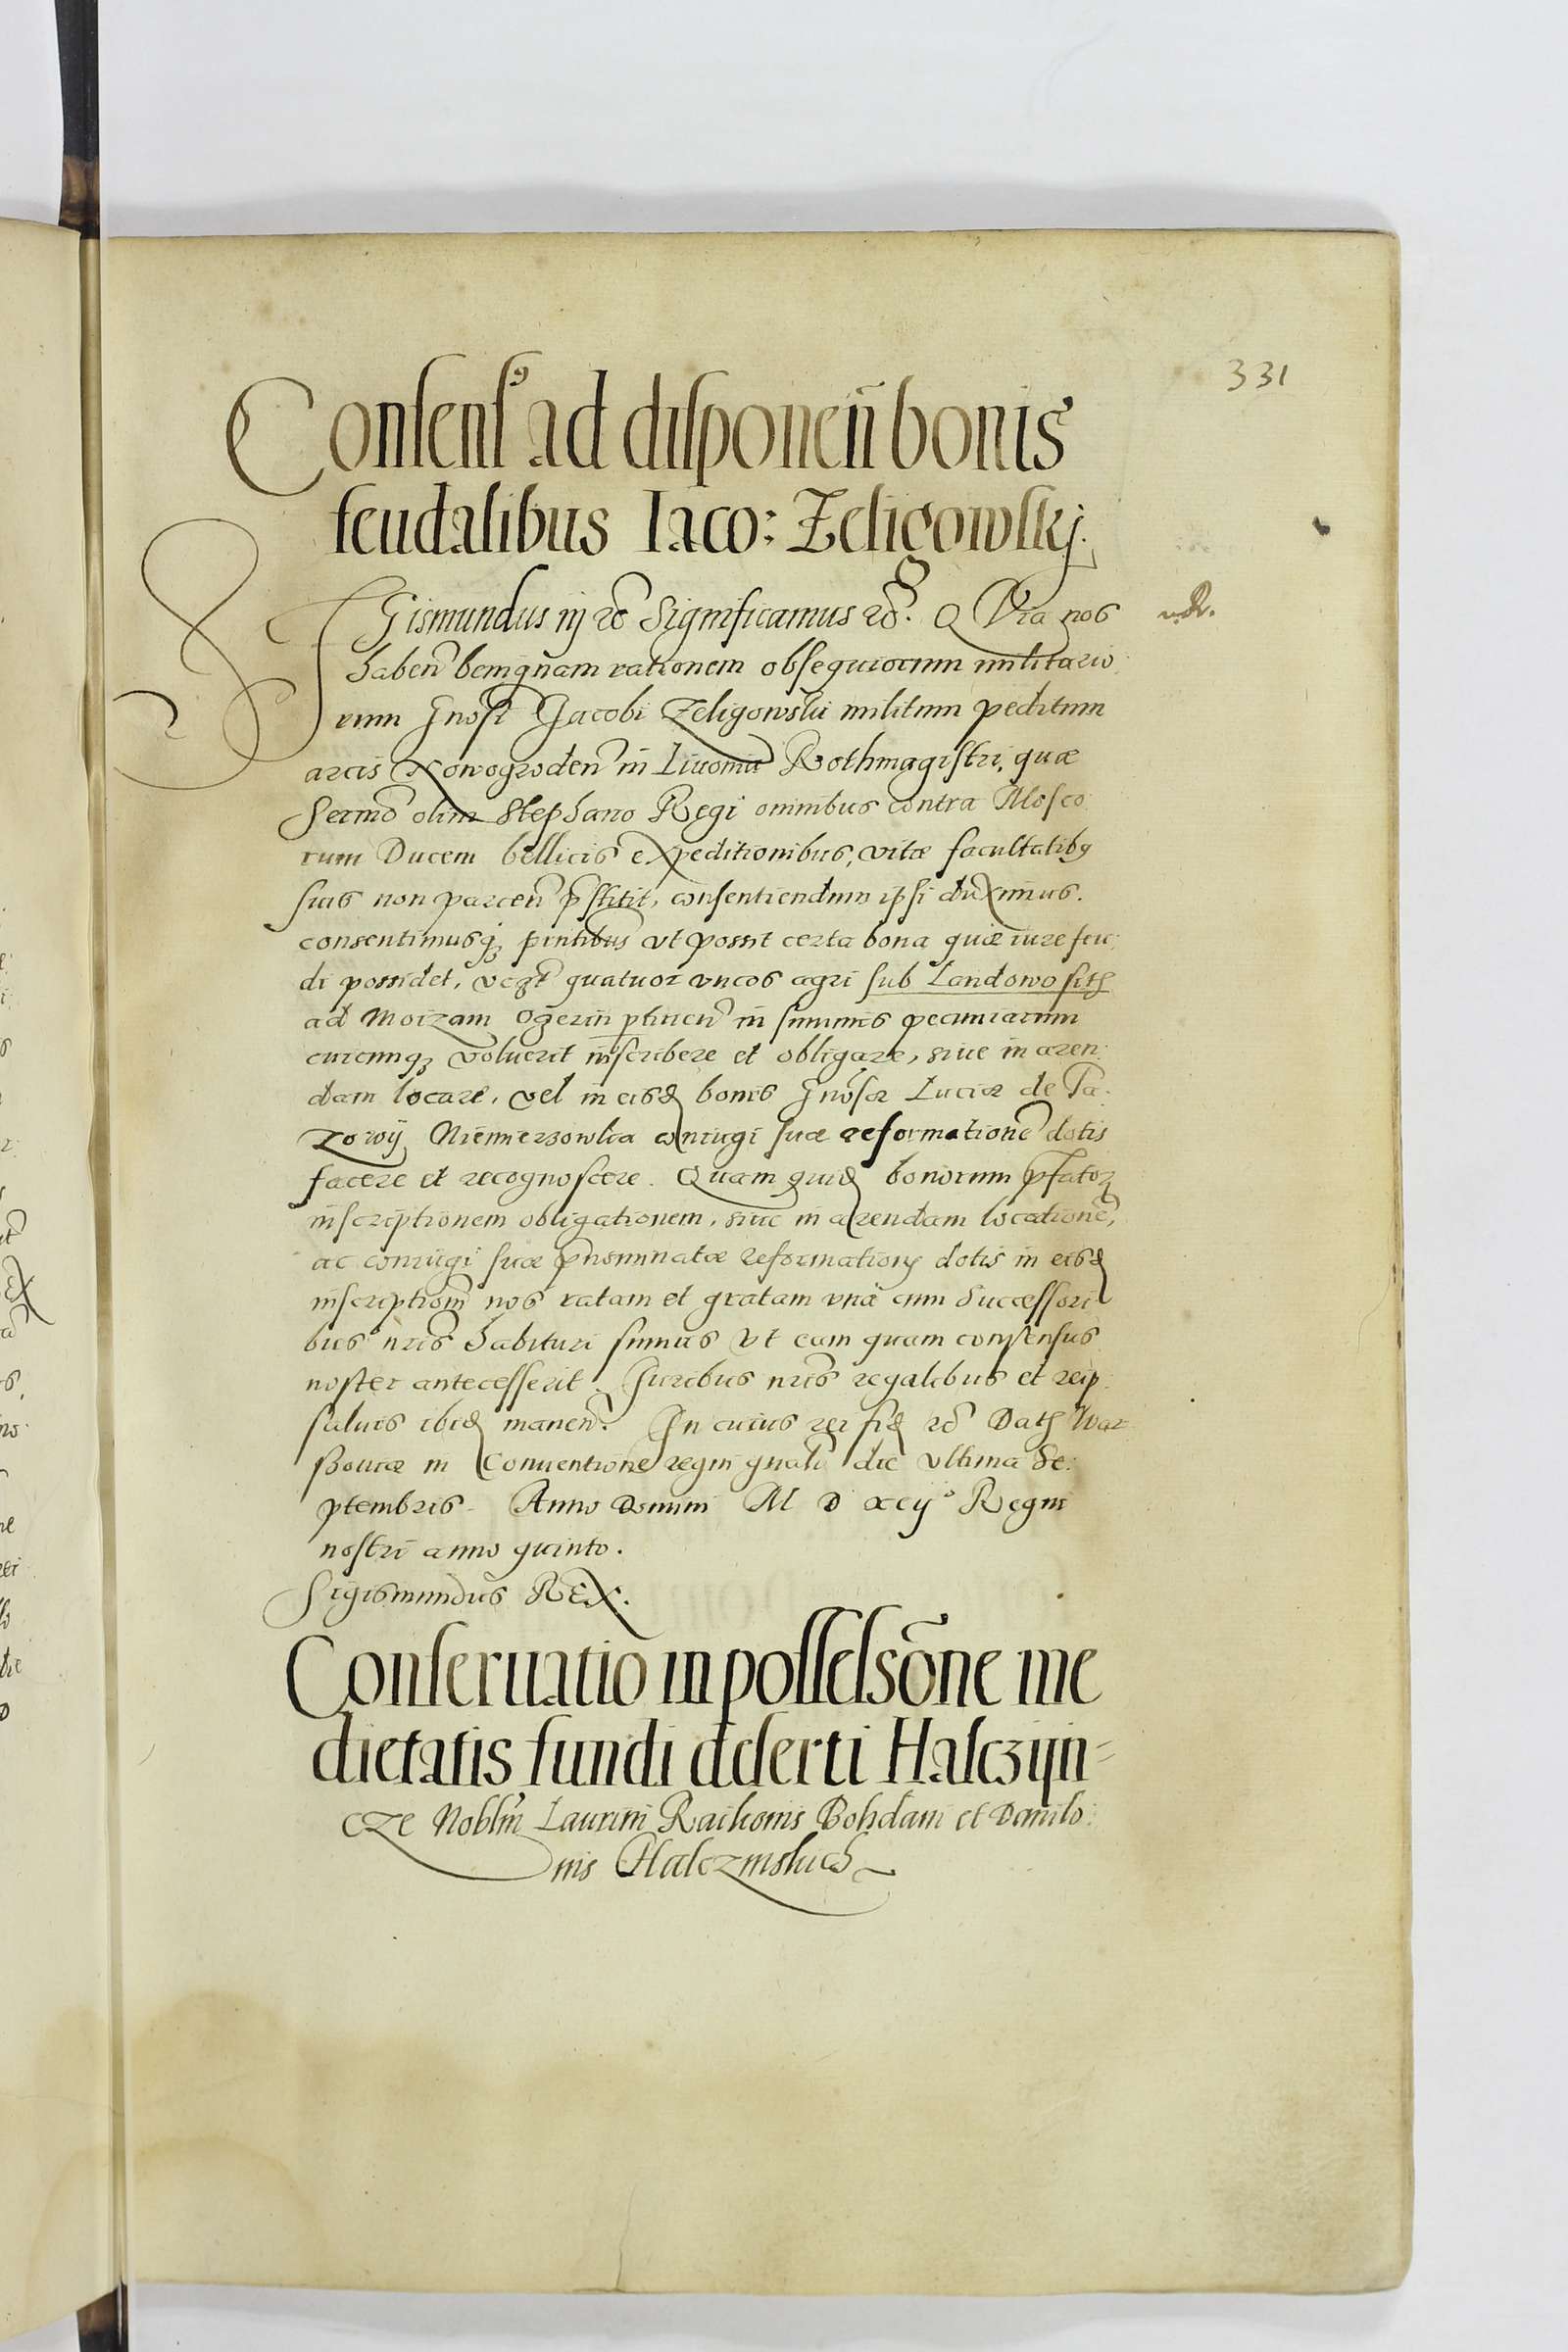 331
Consens⁹ ad disponen̄ bonis
feudalibus Iaco: Zeligowskj.
SIgismundus iij ec̃ Significamus ec̃. Quia nos
haben̄ benignam rationem obsequiorum militario
rum Gnosi Jacobi Zeligowskii militum peditum
arcis Nowogroden̄ in Livonia Rothmagistri, quæ
Sermõ olim Stephano Regi omnibus contra Mosco
rum Ducem bellicis expeditionibus, vitæ facultatibꝫ
suis non parcen̄ p̄stitit, consentiendum ipsi duximus.
consentimusqꝫ pn̄tibus vt possit certa bona quæ iure feu:
di possidet, vezt̄ quatuor vncos agri sub Landowo sith
ad Moizam Ogerin ptinen̄ in summis pecuniarum
cuicunqꝫ voluerit inscribere et obligare, siue in aren:
dam locare, vel in eisd̃ bonis Gnosæ Luciæ de Ta.
zowij Niemierzowka coniugi suæ reformationẽ dotis
facere et recognoscere. Quam quid̃ bonorum p̄fatoꝝ
inscriptionem obligationem, siue in arendam locationẽ,
ac coniugi suæ p̄nominatæ reformationis dotis in eisd̃
inscriptiom̃ nos ratam et gratam vnã cum Successori
bus nr̃is habituri sumus vt eam quam consensus
noster antecesserit. Juribus nr̃is regalibus et reip:
saluis ibid̃ manen̄. In cuius rei fid̃ ec̃ Dath War
ssouiæ in Conuentione regni gnali die vltima Se:
ptembris. Anno Domini M D xcij° Regni
nostri anno quinto.
Sigismundus REX.
Conseruatio in possessõne me
dietatis fundi deserti Halczijn=
cze Noblm̃ Laurini Raikonis Bohdani et Danilo:
nis Halczinskich